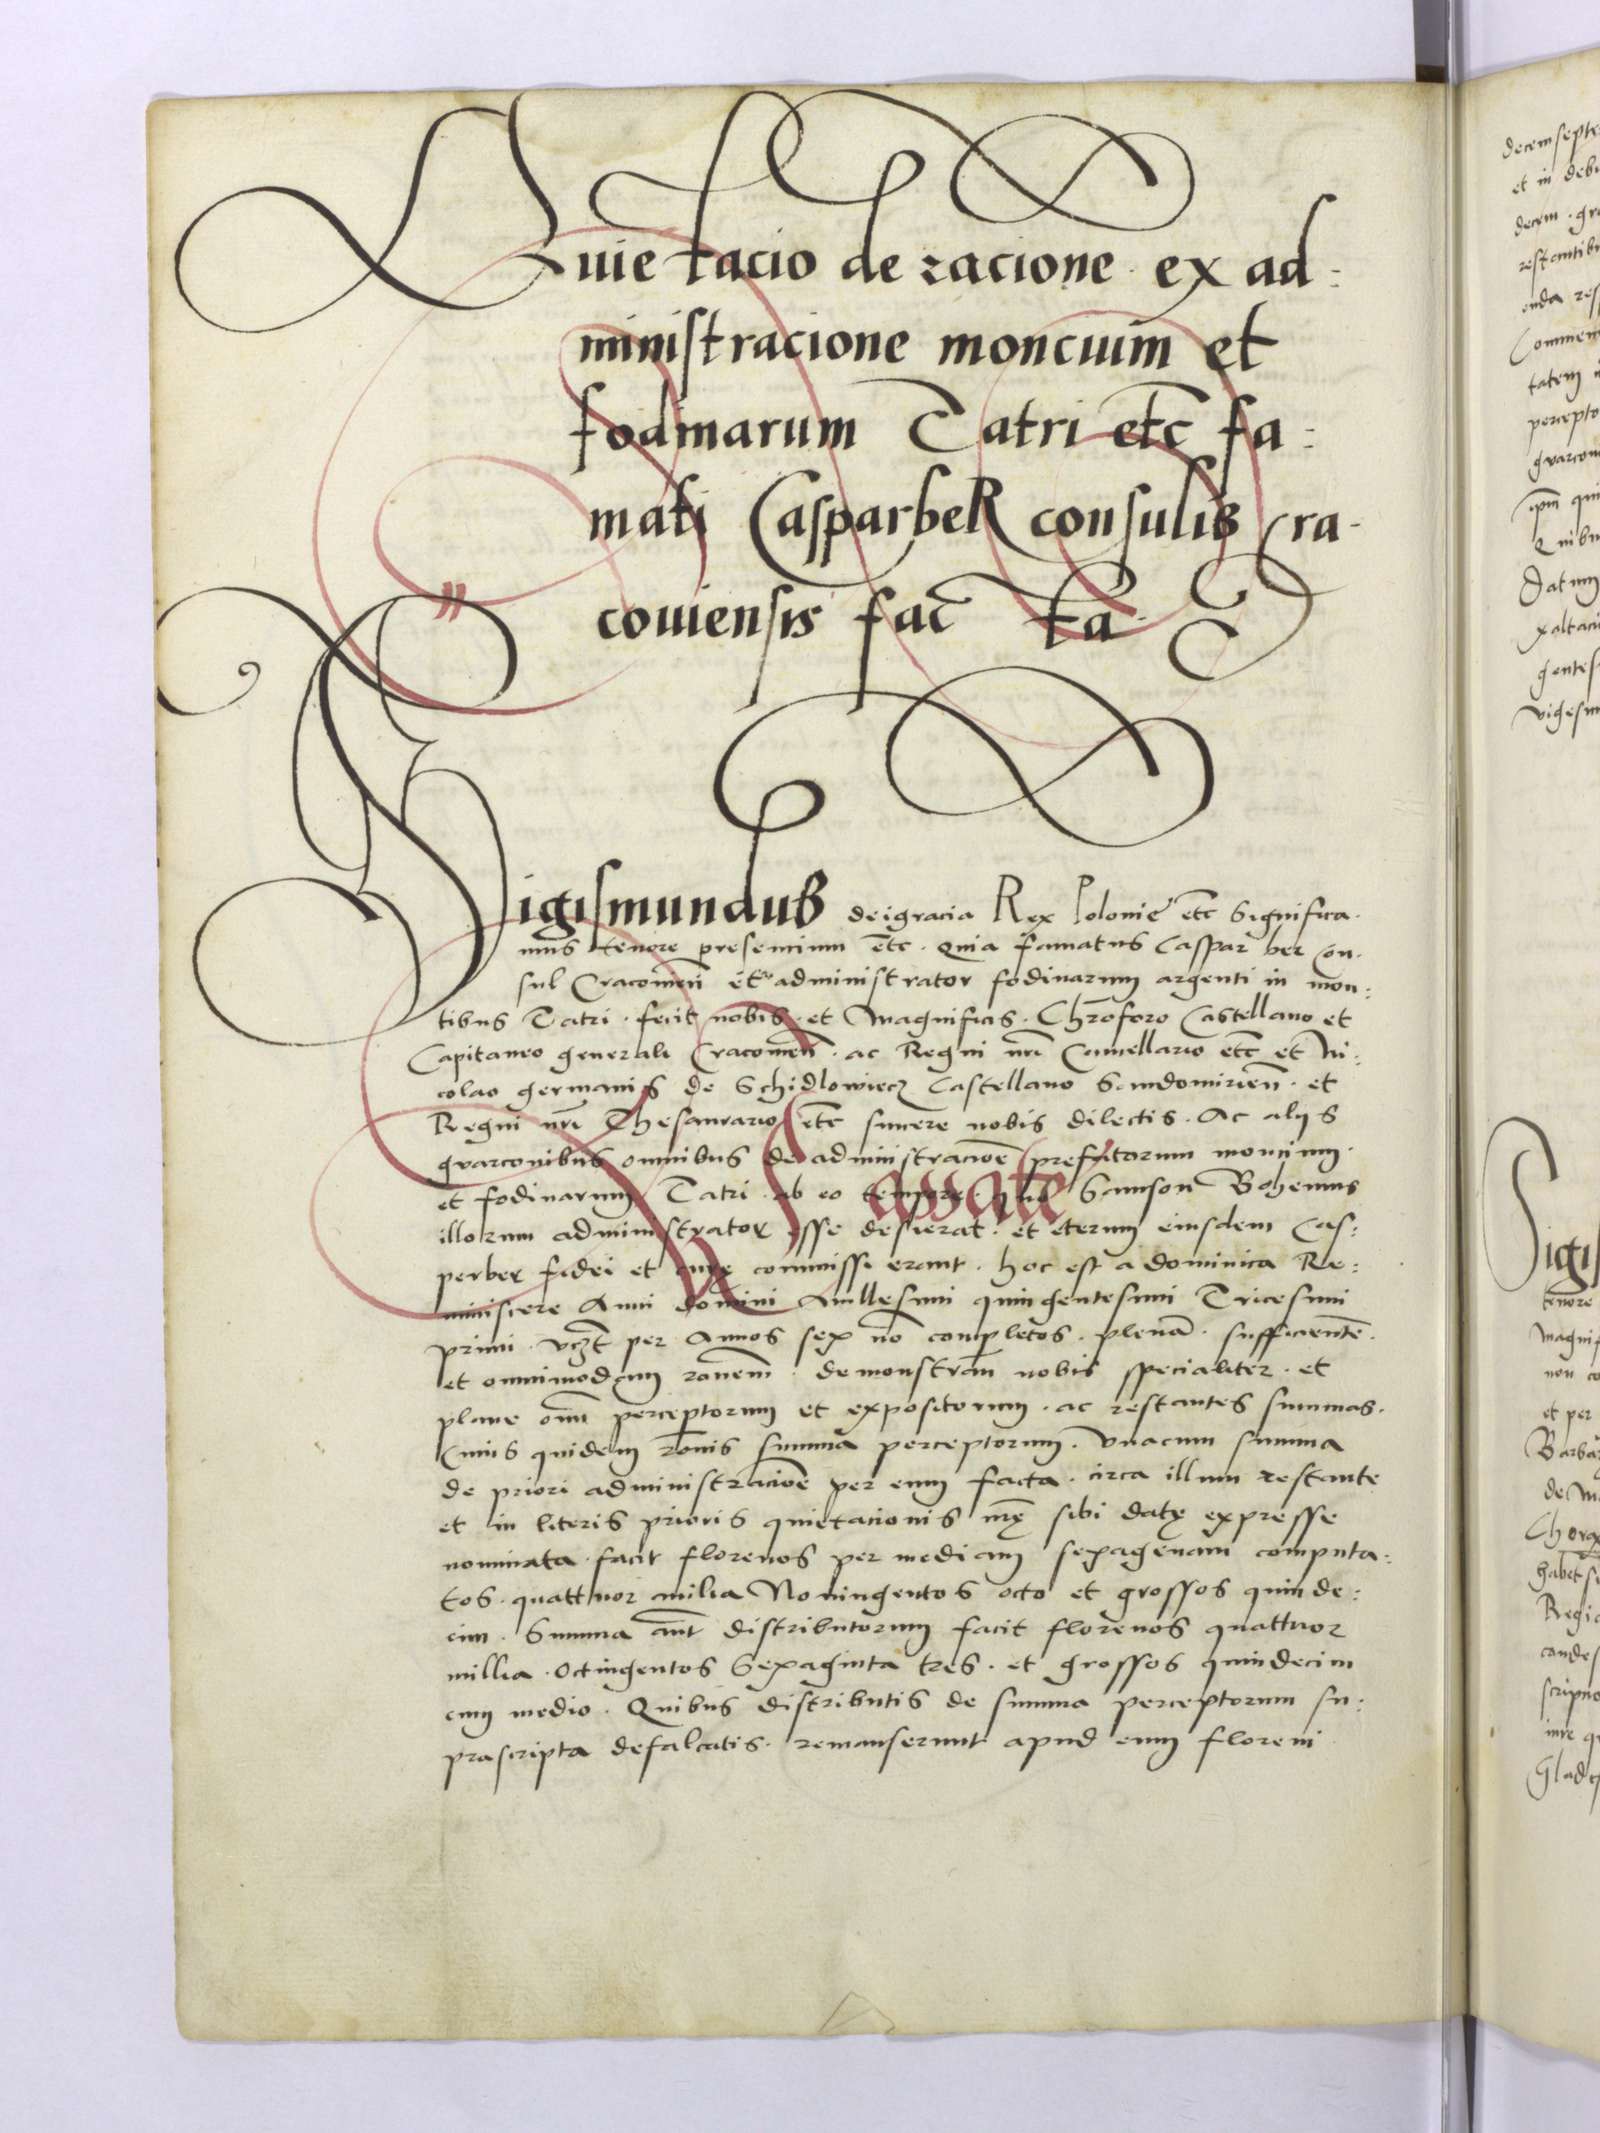 Quietacio de racione ex ad:
ministracione moncium et
fodinarum Tatri etc̄ fa:
mati Casparber consulis Cra-
couiensis fac̄ta
Sigismundus dei gracia Rex Polonie etc̄ Significa-
mus tenore presencium etc̄. Quia famatus Caspar ber Con-
sul Cracouien̄ et administrator fodinarum argenti in mon:
tibus Tatri. fecit nobis. et Magnificis. Chr̄oforo Castellano et
Capitaneo generali Cracouien̄. ac Regni nr̄i Cancellario etc̄ et Ni:
colao germanis de Schidlowiecz Castellano Sandomirien̄. et
Regni nr̄i Thesaurario etc̄ sincere nobis dilectis. Ac alijs
quarconibus omnibus de administracioē prefatorum moncium.
et fodinarum Tatri. ab eo tempore. quo Samson Bohemus
cassate
illorum administrator esse desierat. et eterum eiusdem Cas:
perber fidei et cure commissi erant. hoc est a dominica Re:
miniscere Anni domini Millesimi quingentesimi Tricesimi
primi. vcz̄t per Annos sex no completos. plenā. sufficientē.
et omnimodam raōnem̄. demonstran̄ nobis specialiter. et
plane om̄ perceptorum et expositorum. ac restantes summas.
Cuius quidem rōnis summa perceptorum. vnacum summa
de priori administracioē per eum facta. circa illum restante
et in literis prioris quietacionis nr̄ę sibi datę expresse
nominata. facit florenos per mediam sexagenam computa:
tos. quattuor milia Noningentos octo et grossos quinde:
cim. Summa aūt distributorum facit florenos quattuor
millia. Octingentos Sexaginta tres. et grossos quindecim
cum medio. Quibus distributis de summa perceptorum su:
prascripta defalcatis. remanserunt apud eum floreni
decemsepte
et in deb
decem. gr
restantib
enda res
Commen
tatem
percepto
quarcon
qui
Quibu
Datum
xaltaci
gentes
vigesim
Sigis
tenore
magnif
non co
et per
Barba
de Ma
habet
Regi
candes
scripto
iure q
Glad